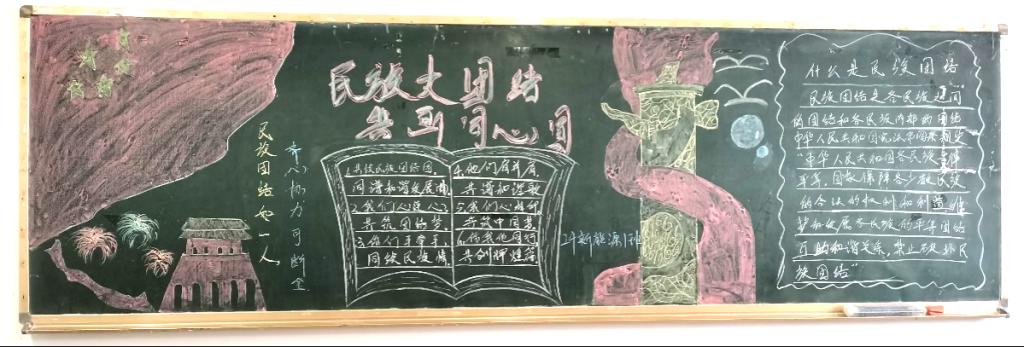 民族大团结
共画同心圆
民族团结如一人
齐心协力可断金
1.共绘民族团结图
同谱和谐发展曲
2.我们心连心
共筑团结梦
3.你们手牵手
同续民族情
4.他们肩并肩
共谱和谐歌
共筑中国梦
共创辉煌
24新能源1班
什么是民族团结
民族团结是各民族之间
的团结和各民族内部的团结
中华人民共和国宪法
"中华人民共和国各民族
平等。国家保障各少数民族
的合法的权利和利益,维
护和发展各民族的平等团结
互助和谐关系,禁止破坏民
族团结"